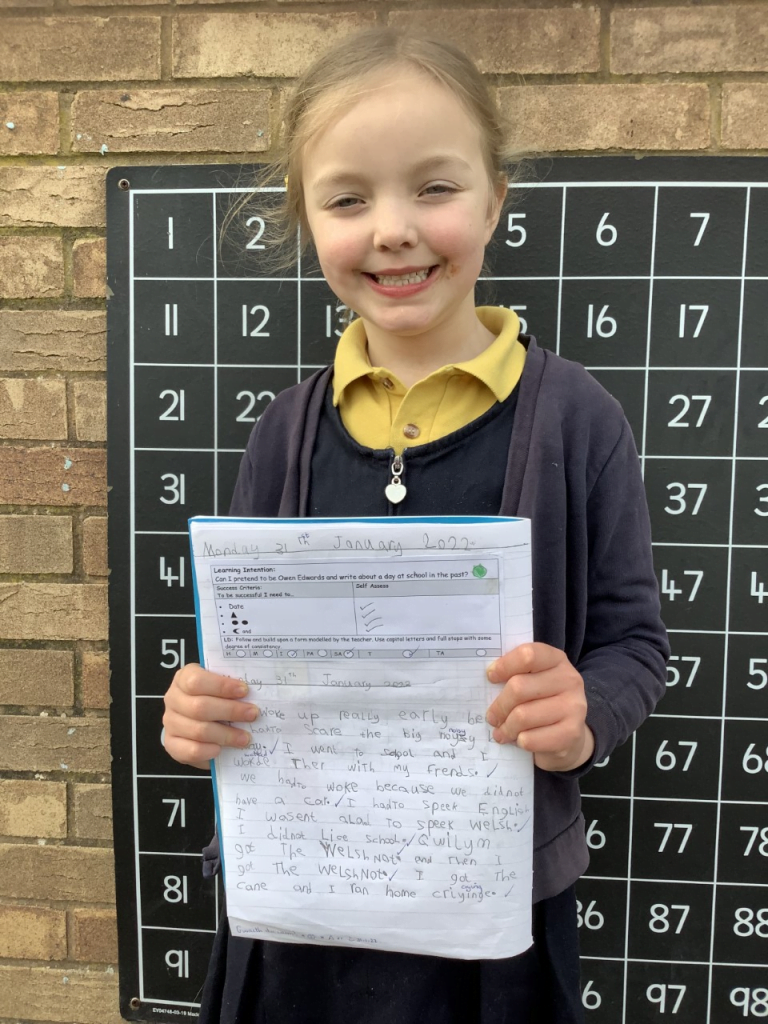 1 2 5 6 7
11 12 13 15 16 17
21 22 27 2
31 37 3
41 47 4
51 57 5
67 68
71 6 77 78
81 86 87 88
91 6 97 98
Monday 31th January 2022
Learning Intention:
Can I pretend to be Owen Edwards and write about a day at school in the past?
Success Criteria: Self Assess
To be successful I need to...
Date
and
LO: Follow and build upon a form modelled by the teacher. Use capital letters and full stops with some
degree of consistency.
H M I PA GA T TA
31th January 2022
woke up really early be
hadto scare the big
I want to school and I
ther with my frends.
we hadto woke because we didnot
have a car. I hadto speek English
I wasent alad to speek welsh.
I didnot Lice school. Gwilym
got The Welsh Not. and Then I
got The Welsh Not. I got The
cane and I ran home criyinge. crying